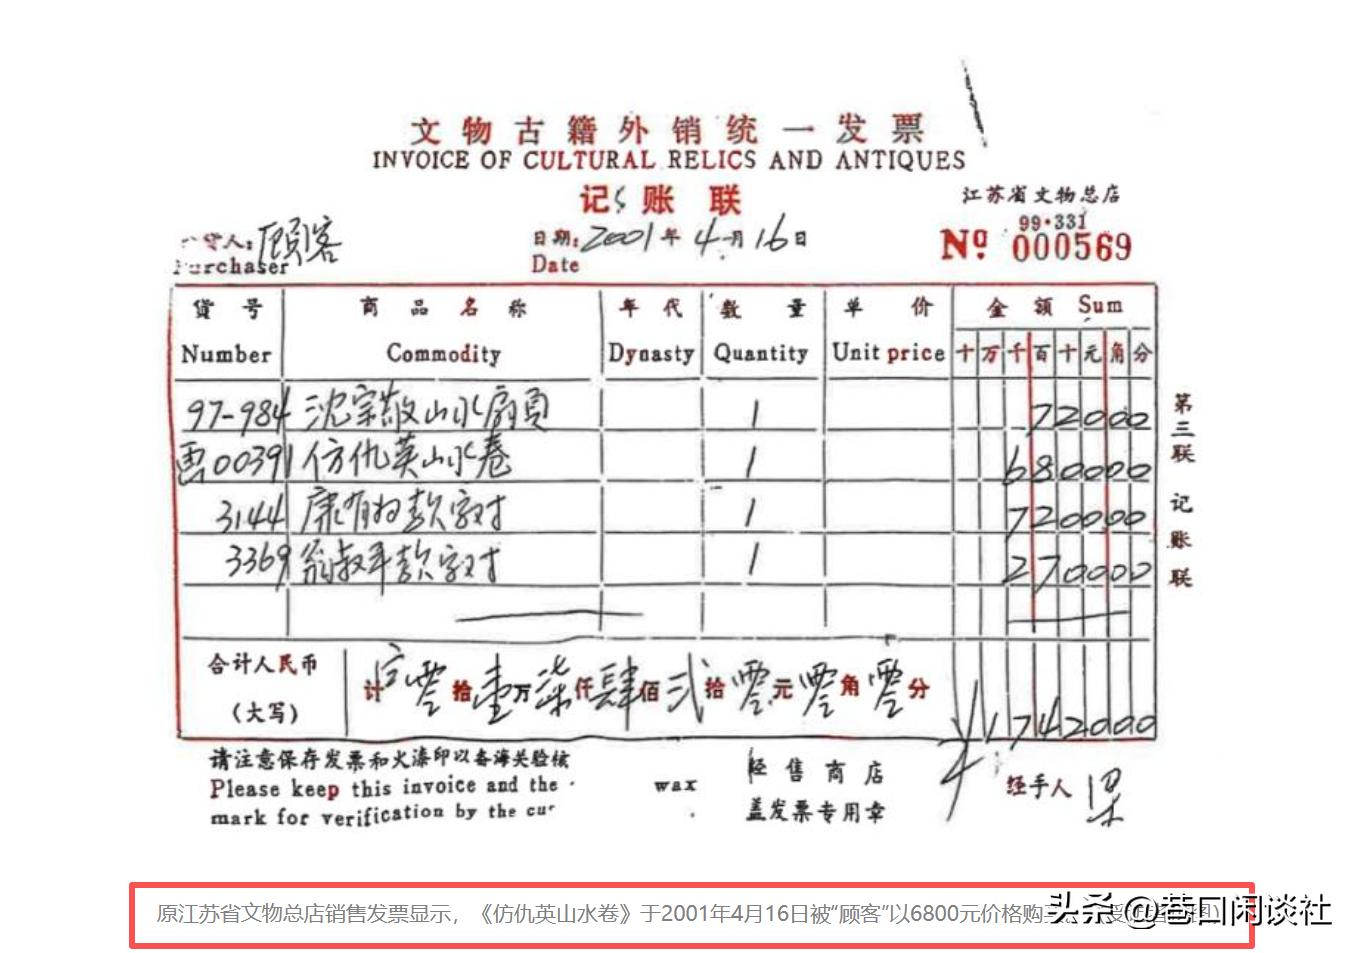 文物古籍外销统一发票
INVOICE OF CULTURAL RELICS AND ANTIQUES
记账联
江苏省文物总店
99·331
货人：顾客
日期：2001年4月16日
Nº 000569
Purchaser
Date
货号 商品名称 年代 数量 单价 金额 Sum
Number Commodity Dynasty Quantity Unit price 十万千百十元角分
97-984 沈宗敬山水扇頁 1 72000
画00391 仿仇英山水卷 1 680000
3144 康有为款字对 1 720000
3369 翁叔平款字对 1 270000
第三联 记账联
合计人民币
(大写)
计 零拾壹万柒仟肆佰贰拾零元零角零分 ¥1742000
请注意保存发票和火漆印以备海关验核
Please keep this invoice and the wax
mark for verification by the cu
经售商店
盖发票专用章
经手人 梁
原江苏省文物总店销售发票显示，《仿仇英山水卷》于2001年4月16日被“顾客”以6800元价格购
头条 @巷口闲谈社